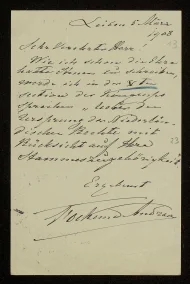 Leiden 5 März
1908
Sehr Geehrter Herr!
Wie ich schon die Ehre
hatte Ihnen zu schreiben,
werde ich in der
section des Kongresses
sprechen „ueber den
Ursprung des Niederlän-
dischen Rechts mit
Rücksicht auf Ihre
Stammeszugehörigkeit
Ergebenst
Fockema Andreae